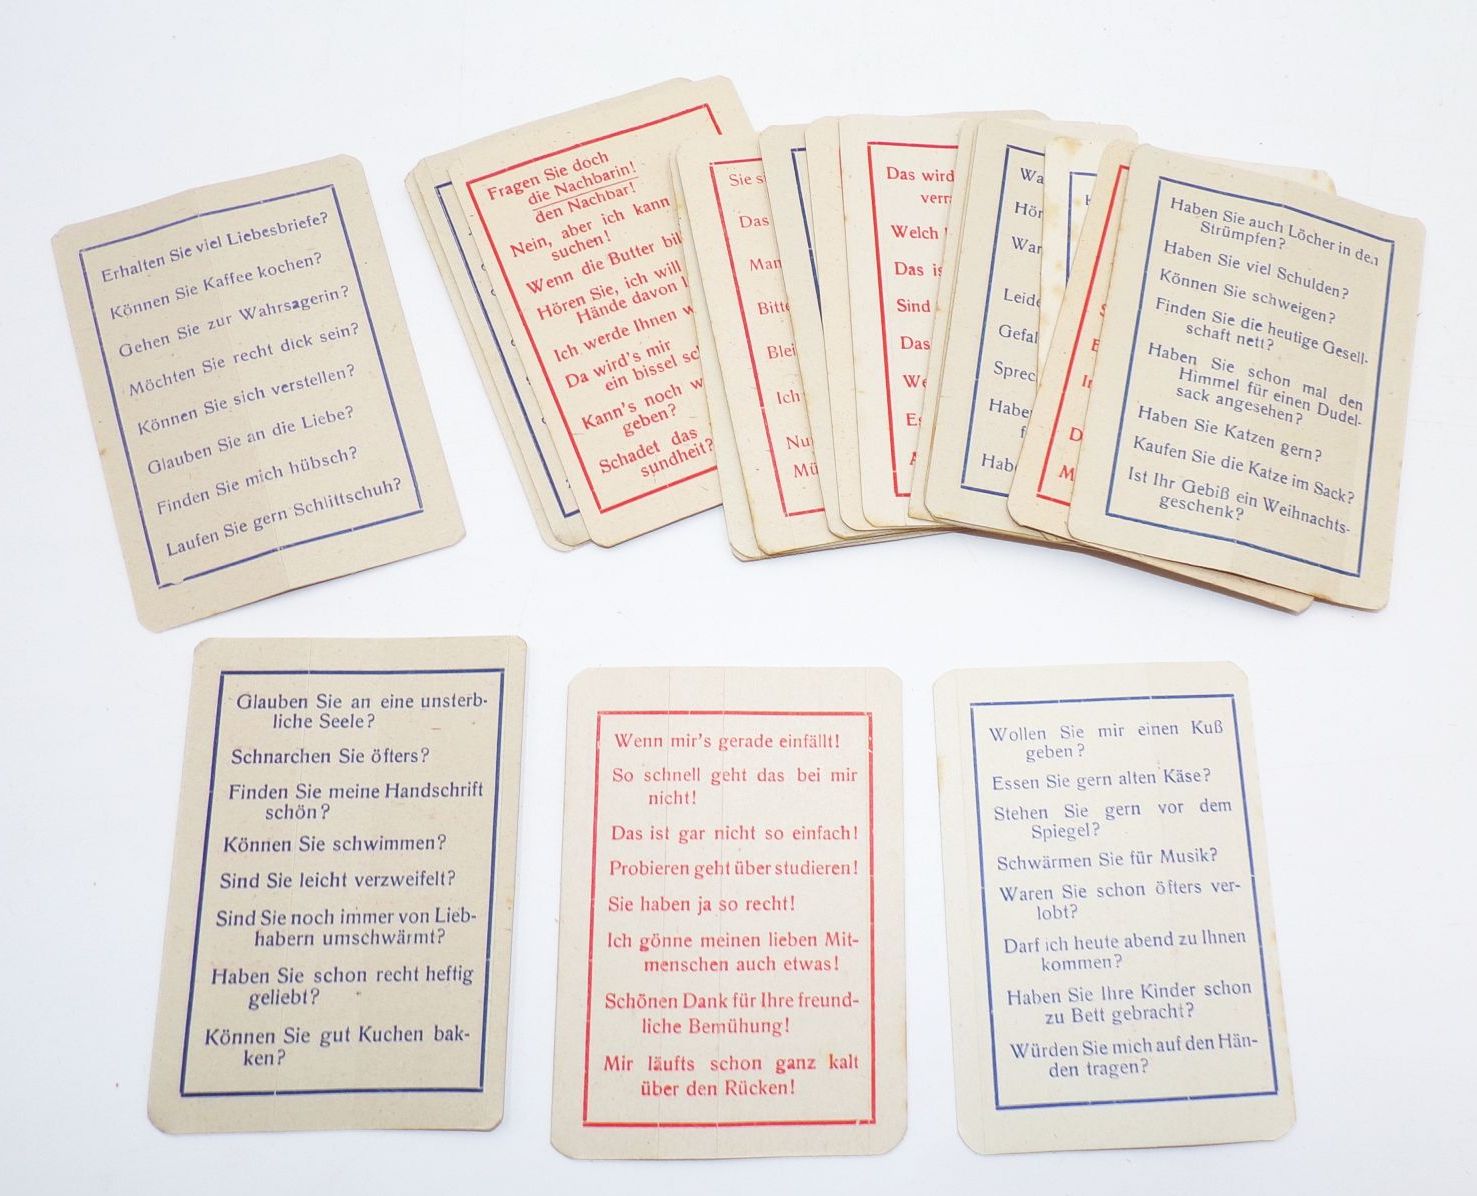 Erhalten Sie viel Liebesbriefe?
Können Sie Kaffee kochen?
Gehen Sie zur Wahrsagerin?
Möchten Sie recht dick sein?
Können Sie sich verstellen?
Glauben Sie an die Liebe?
Finden Sie mich hübsch?
Laufen Sie gern Schlittschuh?
Fragen Sie doch
die Nachbarin!
den Nachbar!
Nein, aber ich kann
suchen!
Wenn die Butter
Hören Sie, ich will
Hände davon
Ich werde Ihnen
Da wird's mir
ein bissel
Kann's noch
geben?
Schadet das
sundheit?
Sie
Das
Das wird
Welch
Das
Sind
Das
Haben Sie auch Löcher in den
Strümpfen?
Haben Sie viel Schulden?
Können Sie schweigen?
Finden Sie die heutige Gesell-
schaft nett?
Haben Sie schon mal den
Himmel für einen Dudel-
sack angesehen?
Haben Sie Katzen gern?
Kaufen Sie die Katze im Sack?
Ist Ihr Gebiß ein Weihnachts-
geschenk?
Glauben Sie an eine unsterb-
liche Seele?
Schnarchen Sie öfters?
Finden Sie meine Handschrift
schön?
Können Sie schwimmen?
Sind Sie leicht verzweifelt?
Sind Sie noch immer von Lieb-
habern umschwärmt?
Haben Sie schon recht heftig
geliebt?
Können Sie gut Kuchen bak-
ken?
Wenn mir's gerade einfällt!
So schnell geht das bei mir
nicht!
Das ist gar nicht so einfach!
Probieren geht über studieren!
Sie haben ja so recht!
Ich gönne meinen lieben Mit-
menschen auch etwas!
Schönen Dank für Ihre freund-
liche Bemühung!
Mir läufts schon ganz kalt
über den Rücken!
Wollen Sie mir einen Kuß
geben?
Essen Sie gern alten Käse?
Stehen Sie gern vor dem
Spiegel?
Schwärmen Sie für Musik?
Waren Sie schon öfters ver-
lobt?
Darf ich heute abend zu Ihnen
kommen?
Haben Sie Ihre Kinder schon
zu Bett gebracht?
Würden Sie mich auf den Hän-
den tragen?